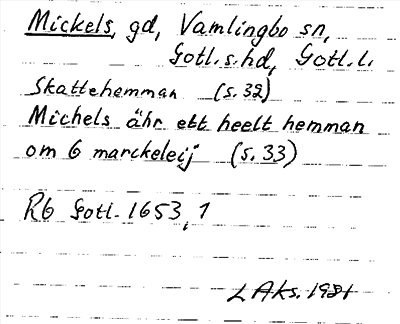 Mickels, gd, Vamlingbo sn,
Gotl. s. hd, Gotl. l.
Skattehemman (s. 32)
Michels ähr ett heelt hemman
om 6 marckeleij (s. 33)
Rb Gotl. 1653, 1
L Aks. 1981